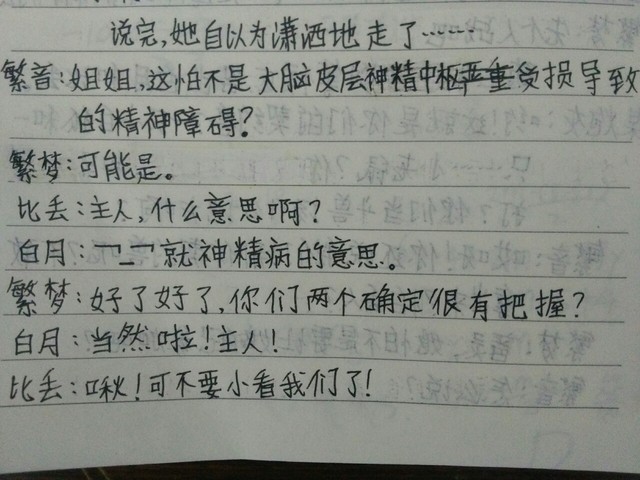 说完,她自以为潇洒地走了……
繁音:姐姐,这怕不是大脑皮层神精中枢严重受损导致
的精神障碍?
繁梦:可能是。
比丢:主人,什么意思啊?
白月:￣_￣就神精病的意思。
繁梦:好了好了,你们两个确定很有把握?
白月:当然啦!主人!
比丢:啾!可不要小看我们了!